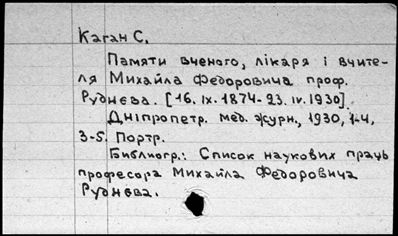 Каган С.
Памяти вченого, лікаря і вчите-
ля Михайла Федоровича проф.
Руднєва. [16. IX. 1874-23. IV. 1930].
Дніпропетр. мед. журн., 1930, 1-4,
3-5. Портр.
Библиогр.: Список наукових праць
професора Михайла Федоровича
Руднєва.